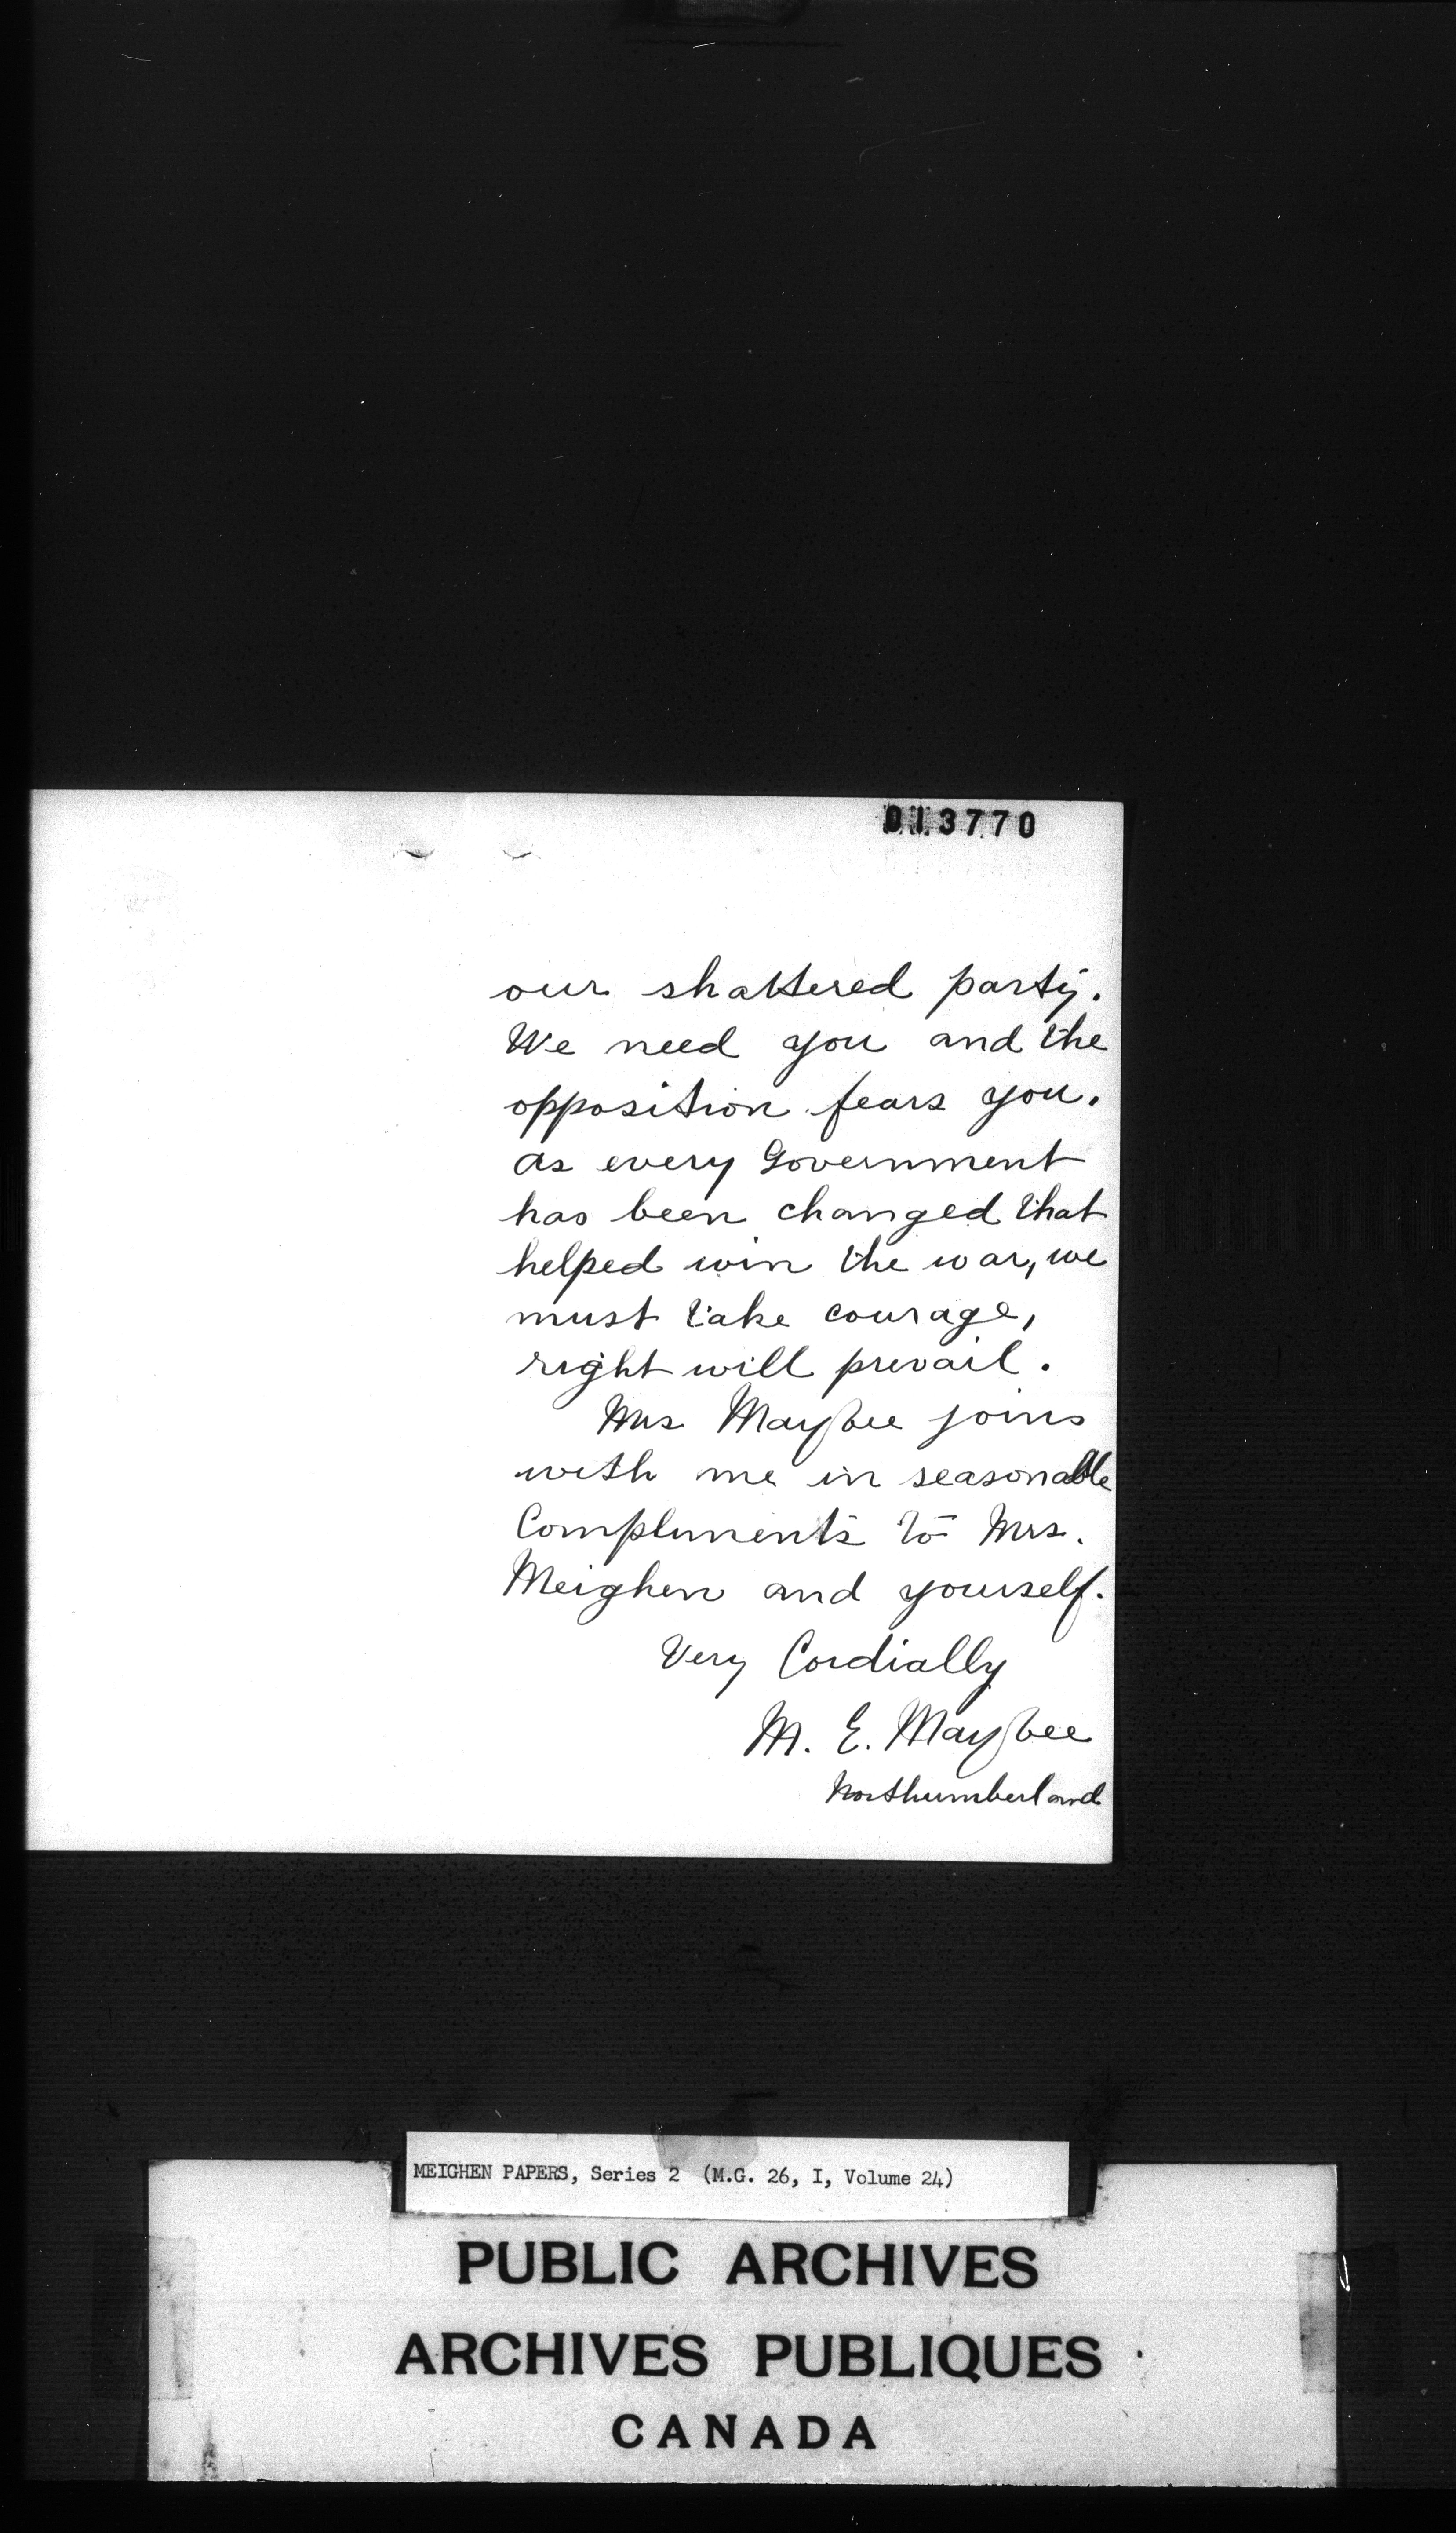 013770
our shattered party.
We need you and the
opposition fears you.
As every Government
has been changed that
helped win the war, we
must take courage,
right will prevail.
Mrs Maybee joins
with me in seasonable
Compliments to Mrs.
Meighen and yourself.
Very Cordially
M. E. Maybee
Northumberland
MEIGHEN PAPERS, Series 2 (M.G. 26, I, Volume 24)
PUBLIC ARCHIVES
ARCHIVES PUBLIQUES
CANADA